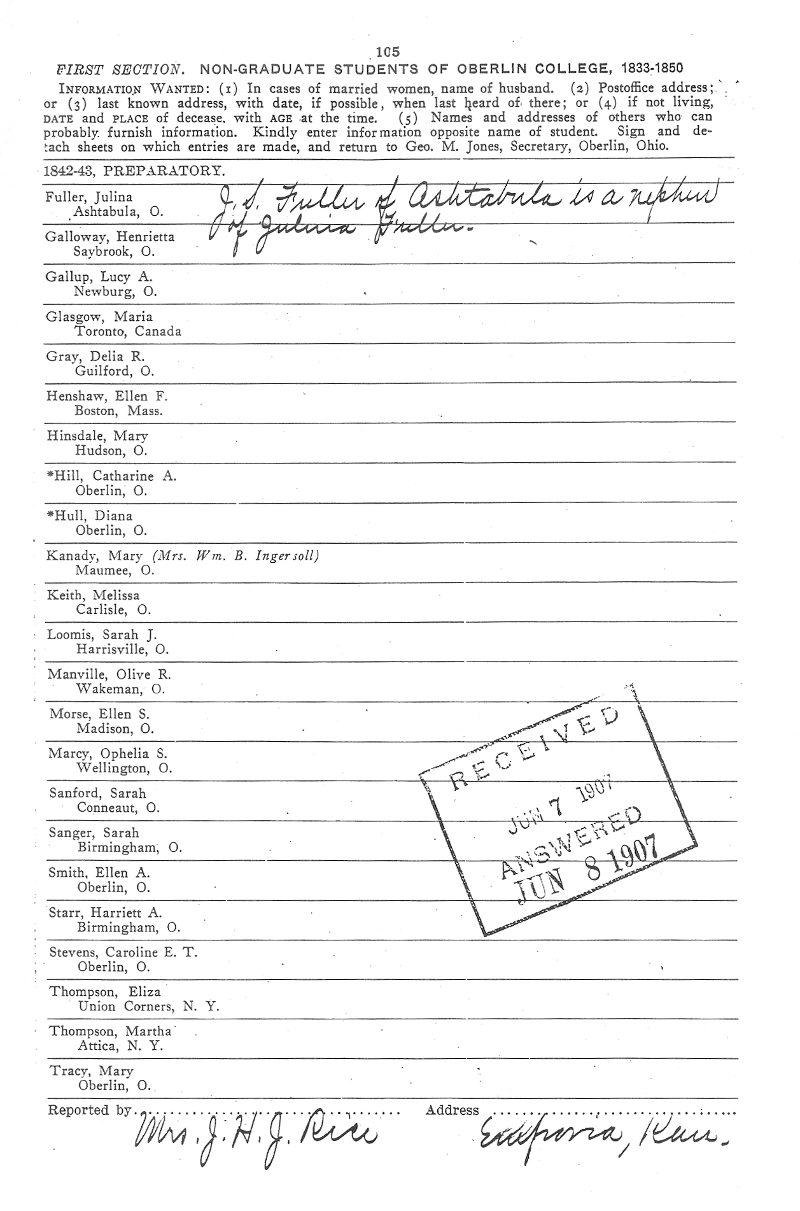 105
FIRST SECTION. NON-GRADUATE STUDENTS OF OBERLIN COLLEGE, 1833-1850
INFORMATION WANTED: (1) In cases of married women, name of husband. (2) Postoffice address;
or (3) last known address, with date, if possible, when last heard of there; or (4) if not living,
DATE and PLACE of decease, with AGE at the time. (5) Names and addresses of others who can
probably furnish information. Kindly enter information opposite name of student. Sign and de-
tach sheets on which entries are made, and return to Geo. M. Jones, Secretary, Oberlin, Ohio.
1842-43, PREPARATORY.
Fuller, Julina
Ashtabula, O.
J. S. Fuller of Ashtabula is a nephew
of Julina Fuller.
Galloway, Henrietta
Saybrook, O.
Gallup, Lucy A.
Newburg, O.
Glasgow, Maria
Toronto, Canada
Gray, Delia R.
Guilford, O.
Henshaw, Ellen F.
Boston, Mass.
Hinsdale, Mary
Hudson, O.
*Hill, Catharine A.
Oberlin, O.
*Hull, Diana
Oberlin, O.
Kanady, Mary (Mrs. Wm. B. Ingersoll)
Maumee, O.
Keith, Melissa
Carlisle, O.
Loomis, Sarah J.
Harrisville, O.
Manville, Olive R.
Wakeman, O.
Morse, Ellen S.
Madison, O.
Marcy, Ophelia S.
Wellington, O.
Sanford, Sarah
Conneaut, O.
Sanger, Sarah
Birmingham, O.
Smith, Ellen A.
Oberlin, O.
Starr, Harriett A.
Birmingham, O.
Stevens, Caroline E. T.
Oberlin, O.
Thompson, Eliza
Union Corners, N. Y.
Thompson, Martha
Attica, N. Y.
Tracy, Mary
Oberlin, O.
RECEIVED
JUN 7 1907
ANSWERED
JUN 8 1907
Reported by.................................. Address ..................................
Mrs. J. H. J. Rice Kan.